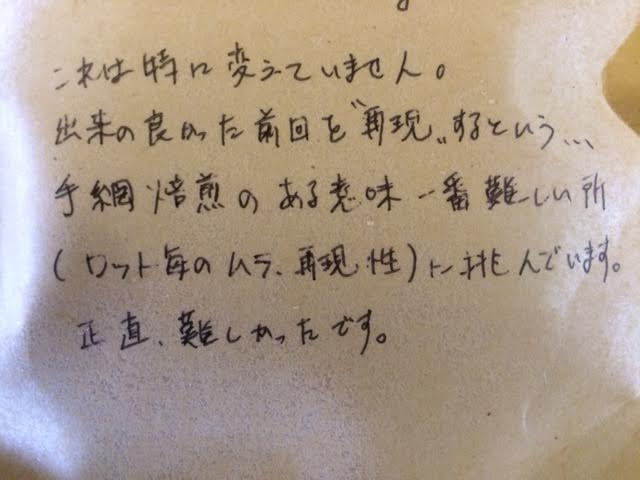 これは特に変えていません。
出来の良かった前回を"再現"するという...
手網焙煎のある意味一番難しい所
(ロット毎のムラ、再現性)に挑んでいます。
正直、難しかったです。